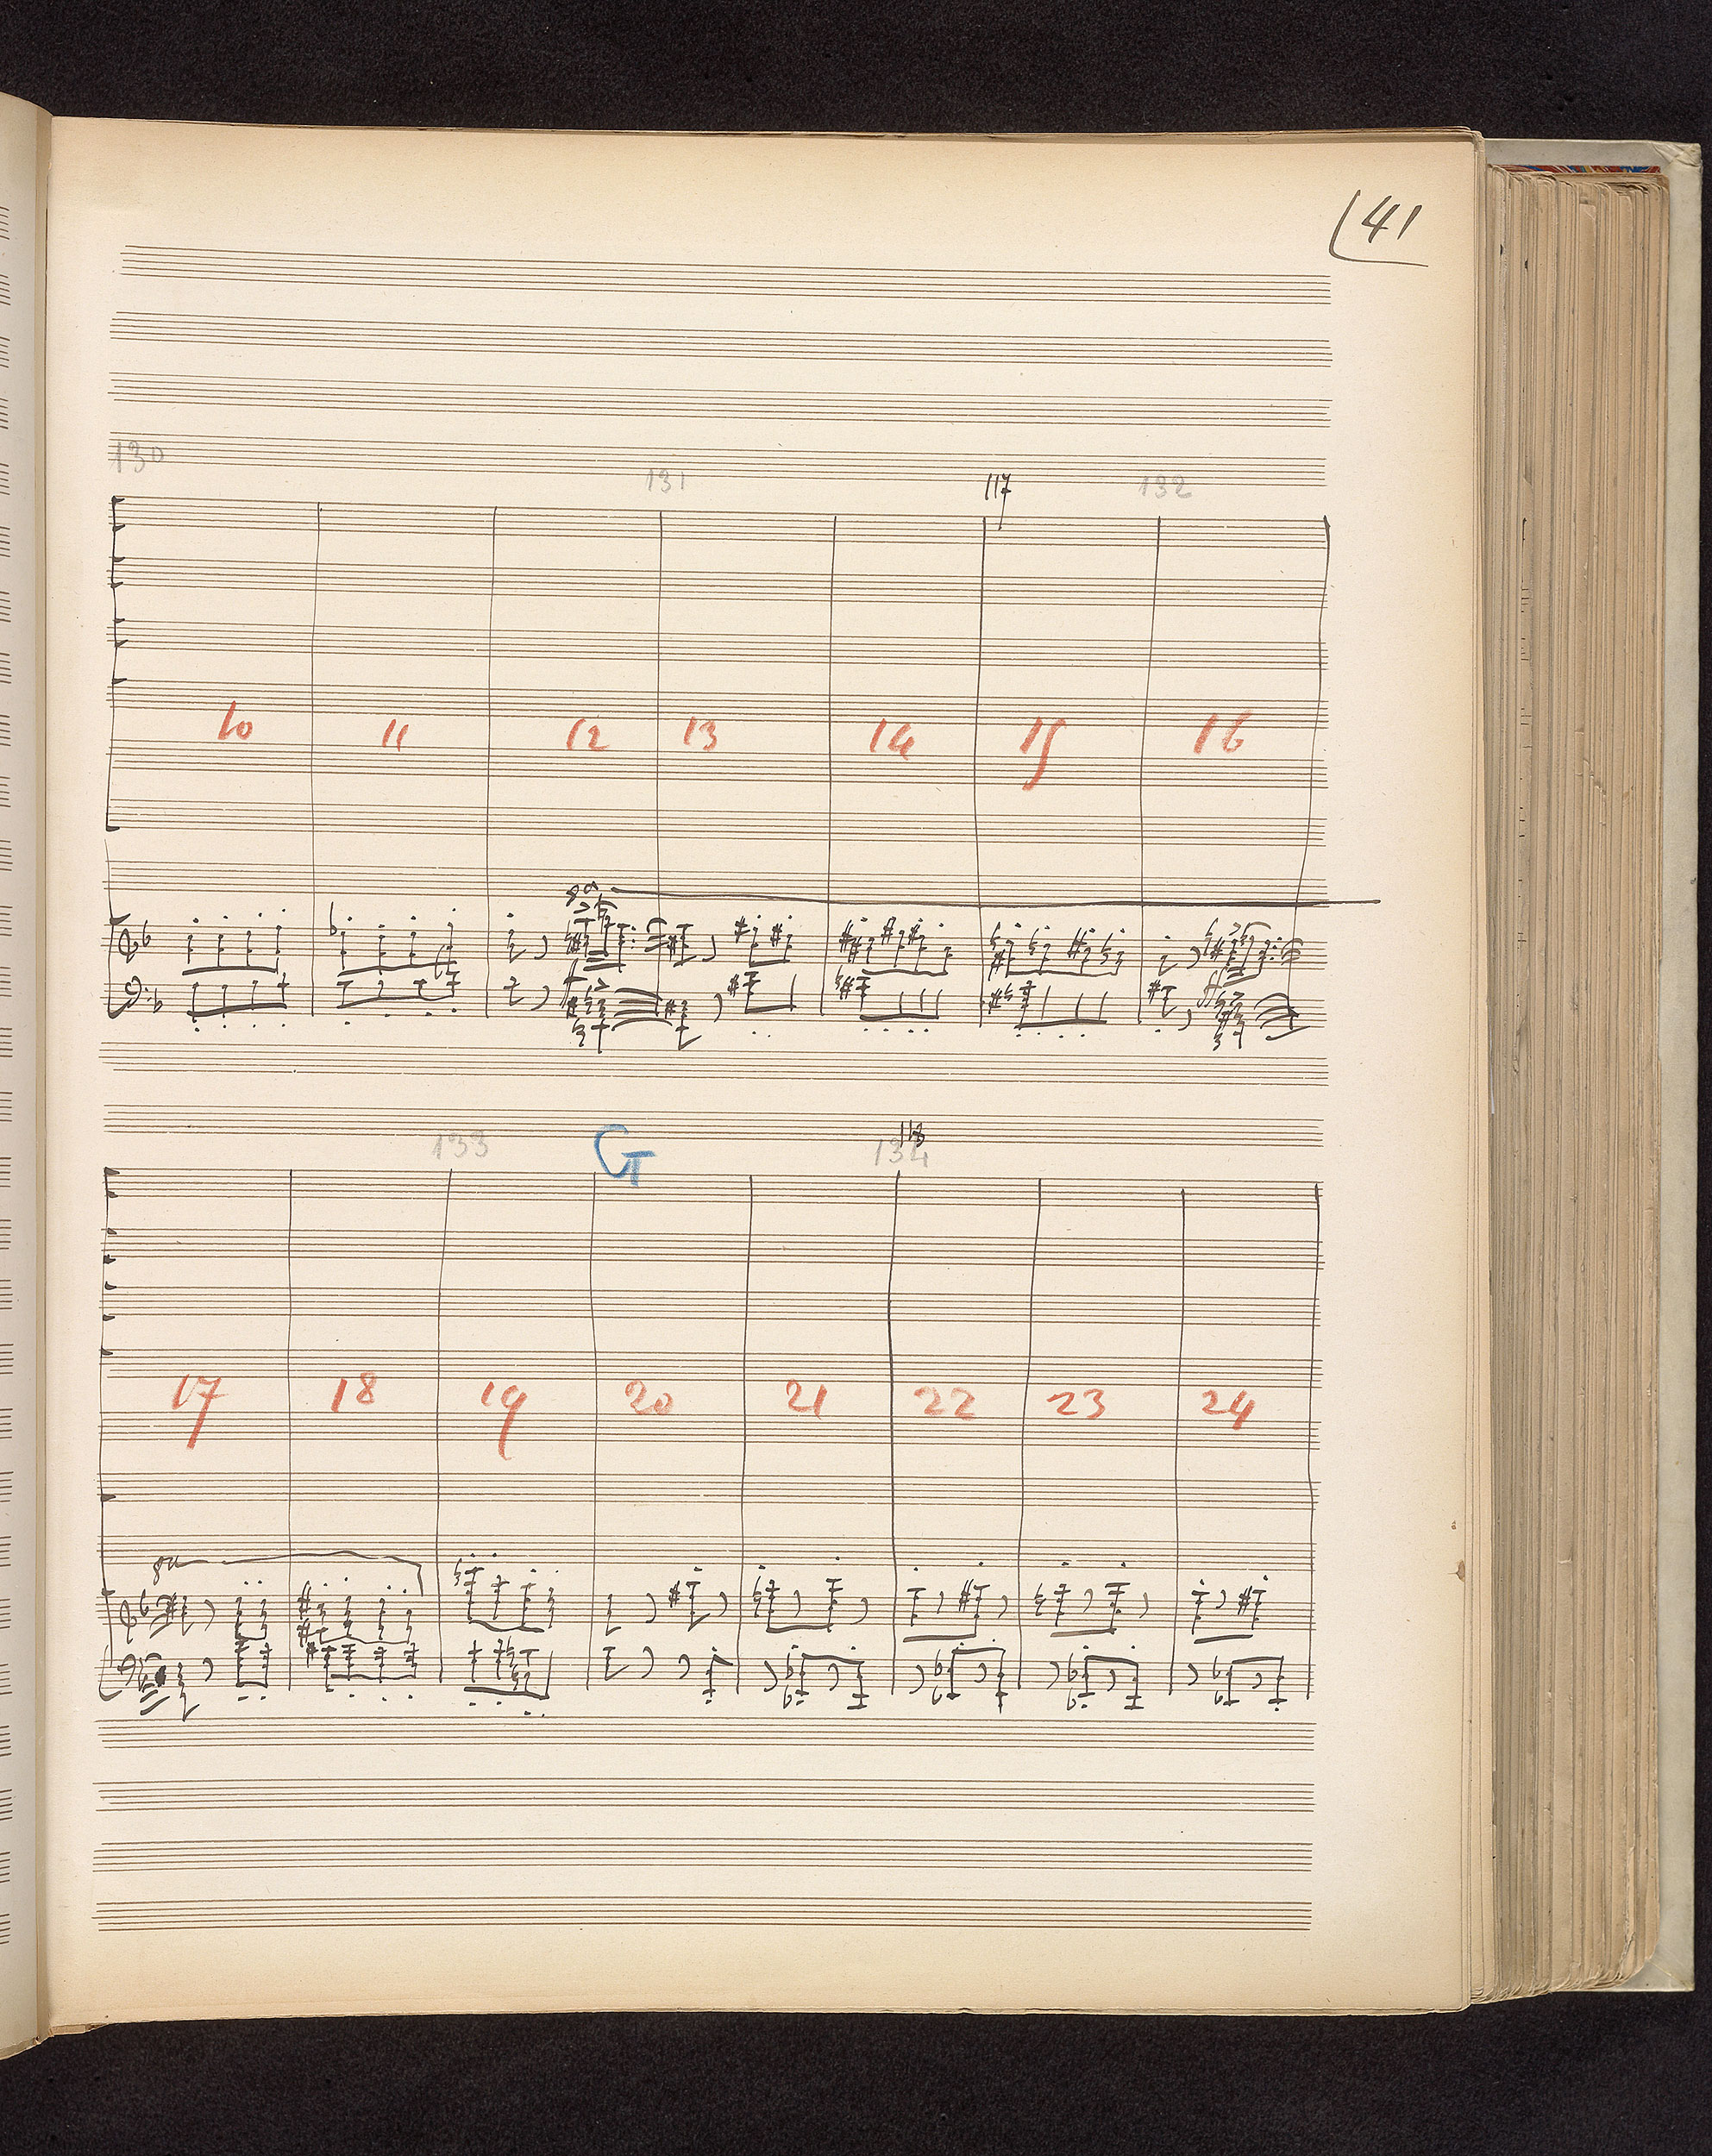 41
130 131 117 132
10 11 12 13 14 15 16
8a
ff ff
133 G 134 118
17 18 19 20 21 22 23 24
8a